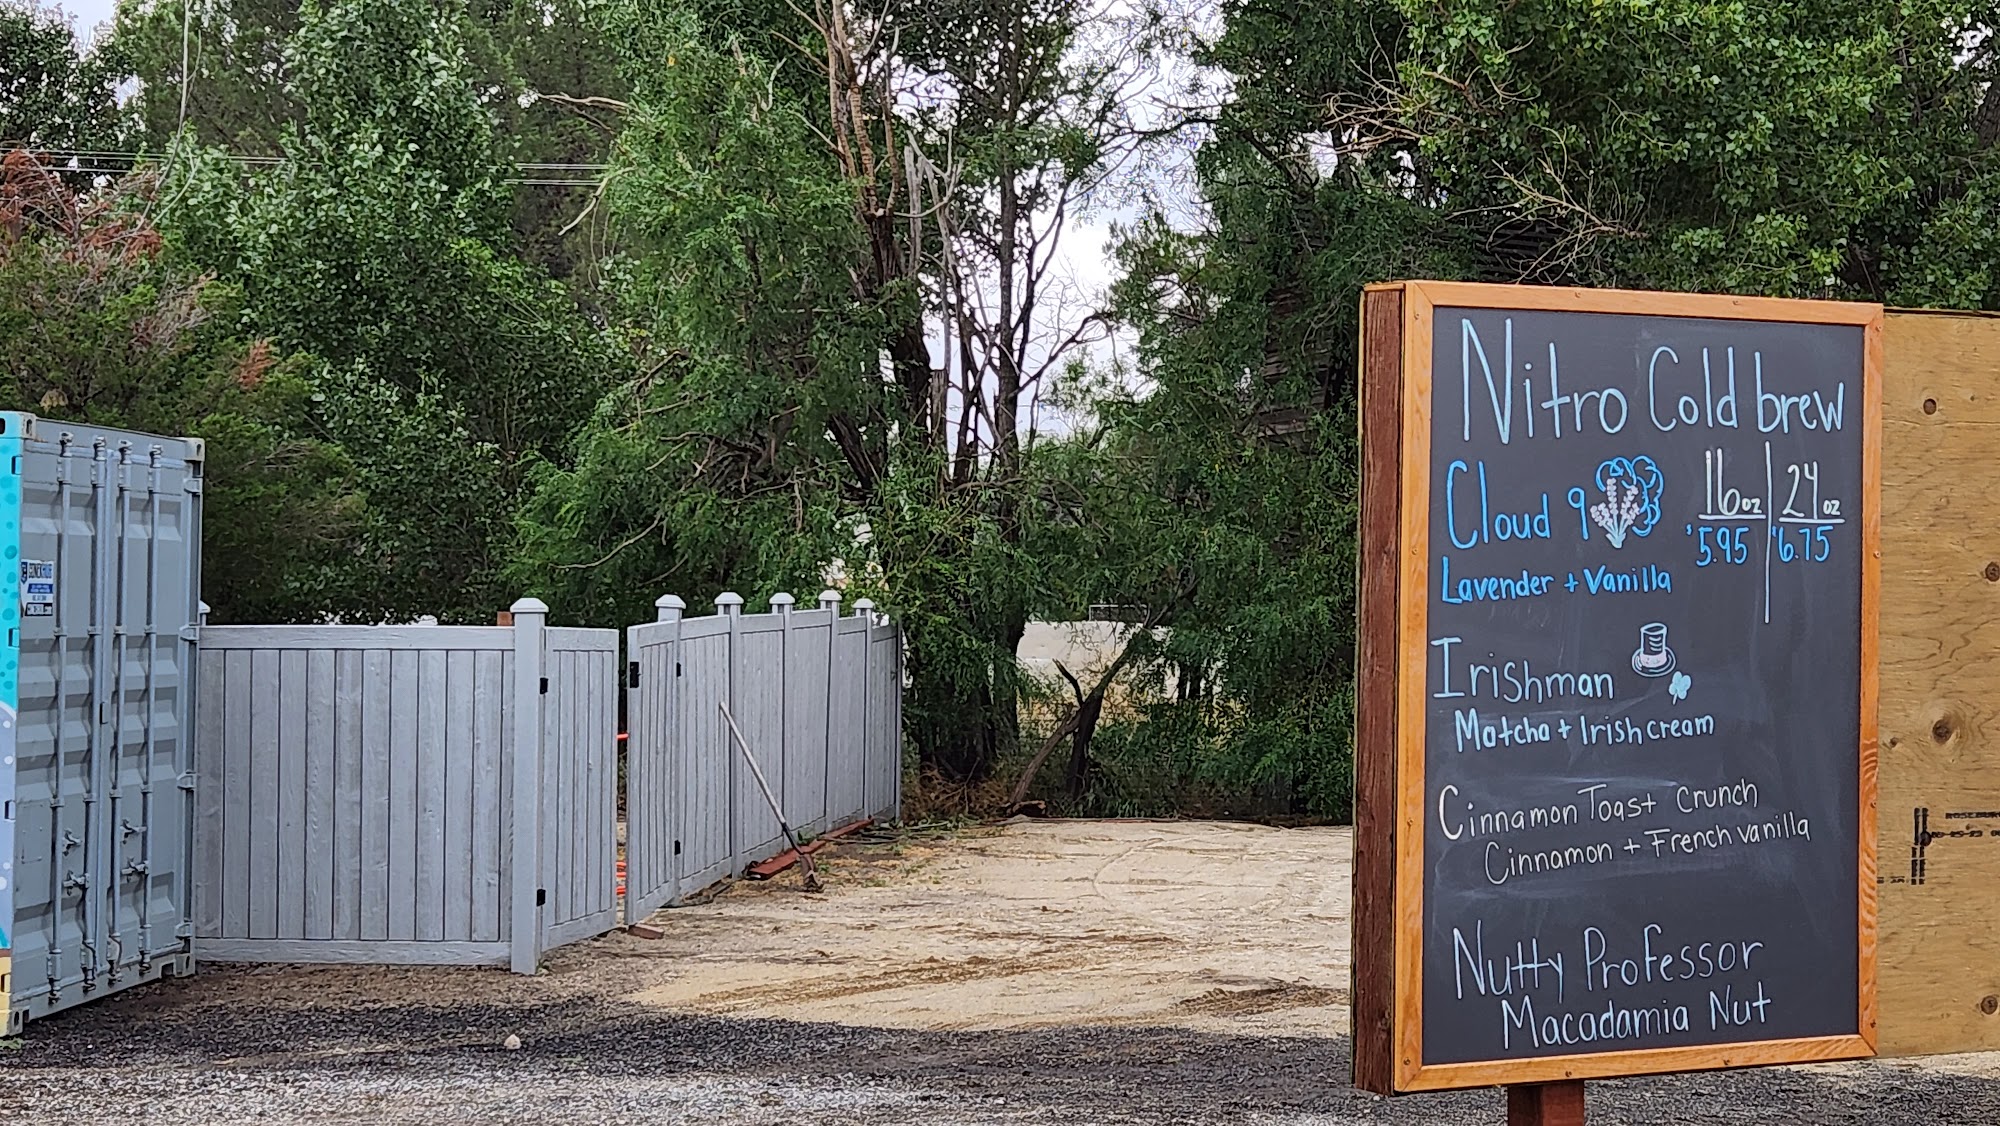 Nitro Cold brew
Cloud 9
16oz 24oz
$5.95 $6.75
Lavender + Vanilla
Irishman
Matcha + Irish cream
Cinnamon Toast Crunch
Cinnamon + French vanilla
Nutty Professor
Macadamia Nut